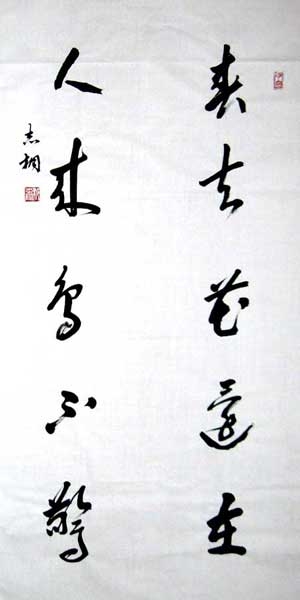 春去花還在
人来鳥不驚
志桐